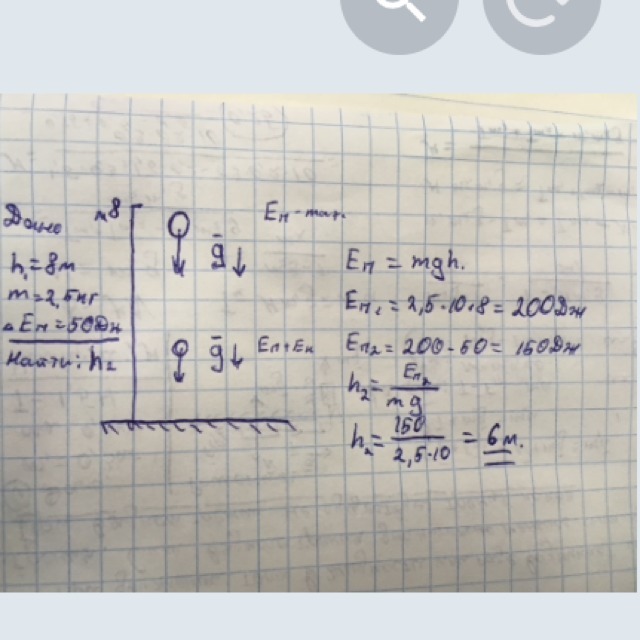 Дано
h₁ = 8м
m = 2,5кг
△Eп = 50Дж
Найти: h₂
м8
Eп - max.
g̅
g̅
Eп+Eк
Eп = mgh.
Eп₁ = 2,5·10·8 = 200Дж
Eп₂ = 200 - 50 = 150Дж
h₂ = Eп₂ / mg
h₂ = 150 / 2,5·10 = 6м.